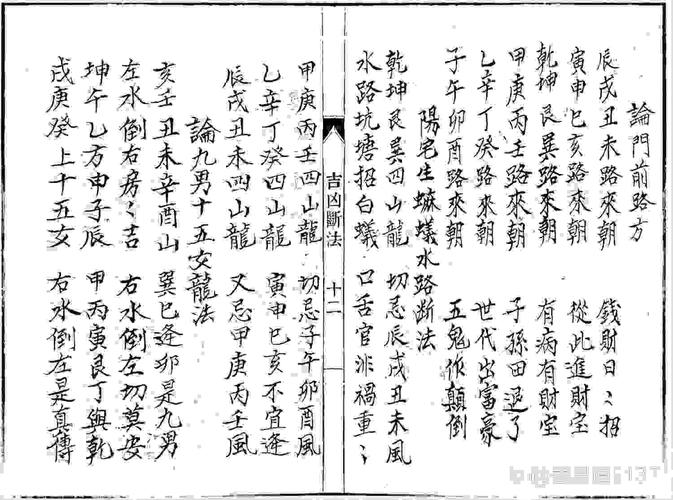 論門前路方
辰戌丑未路來朝 錢財日〻招
寅申巳亥路來朝 從此進財宝
乾坤艮巽路來朝 有病有財宝
甲庚丙壬路來朝 子孫田退了
乙辛丁癸路來朝 世代出富豪
子午卯酉路來朝 五鬼作顛倒
陽宅生蔴蟻水路断法
乾坤艮巽四山龍 切忌辰戌丑未風
水路坑塘招白蟻 口舌官非禍重〻
吉凶斷法 十二
甲庚丙壬四山龍 切忌子午卯酉風
乙辛丁癸四山龍 寅申巳亥不宜逢
辰戌丑未四山龍 又忌甲庚丙壬風
論九男十五女龍法
亥壬丑未辛酉山 巽巳逢卯是九男
左水倒右房〻吉 右水倒左切莫安
坤午乙方申子辰 甲丙寅艮丁與乾
戌庚癸上十五女 右水倒左是真傳